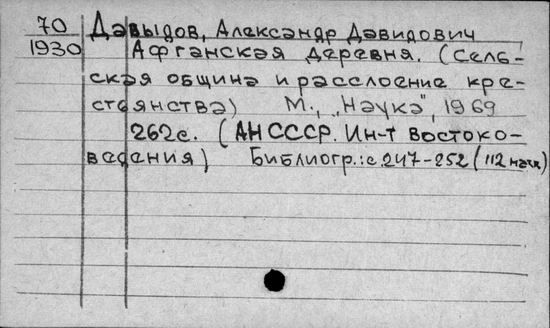 70 Давыдов, Александр Давидович
1930 Афганская деревня. (Сель-
ская община и расслоение кре-
стьянства) М., "Наука", 1969
262с. (АН СССР. Ин-т востоко-
ведения) Библиогр.: с. 247-252 (112 назв)